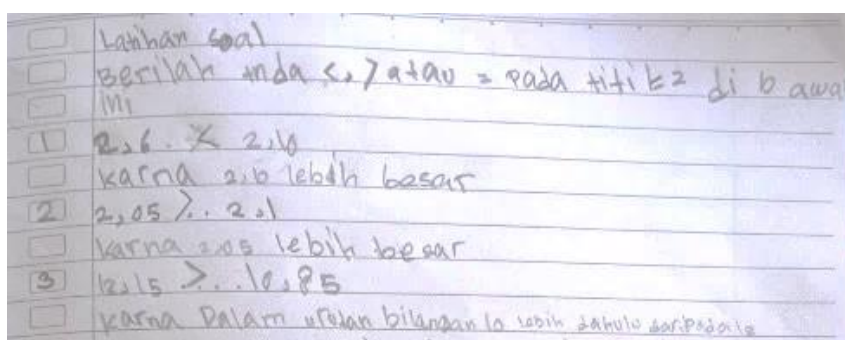 Latihan Soal
Berilah tnda <, > atau = pada titik2 di bawa
ini
1 2,6 . < 2,10
karna 2,10 lebih besar
2 2,05 >.. 2,1
karna 2,05 lebih besar
3 12,15 >...10,85
karna Dalam urutan bilangan 10 lebih dahulu daripada 12